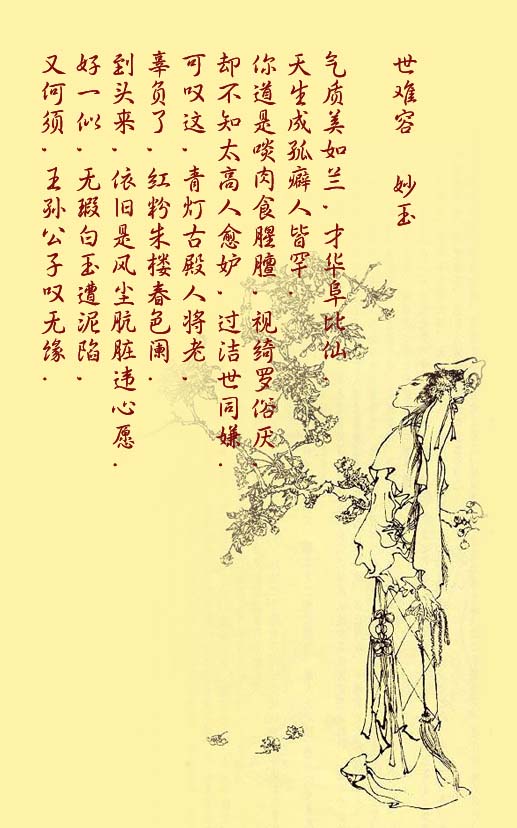 世难容 妙玉
气质美如兰.才华阜比仙
天生成孤癖人皆罕.
你道是啖肉食腥膻.视绮罗俗厌.
却不知太高人愈妒.过洁世同嫌.
可叹这.青灯古殿人将老.
辜负了.红粉朱楼春色阑.
到头来.依旧是风尘肮脏违心愿.
好一似.无瑕白玉遭泥陷.
又何须.王孙公子叹无缘.